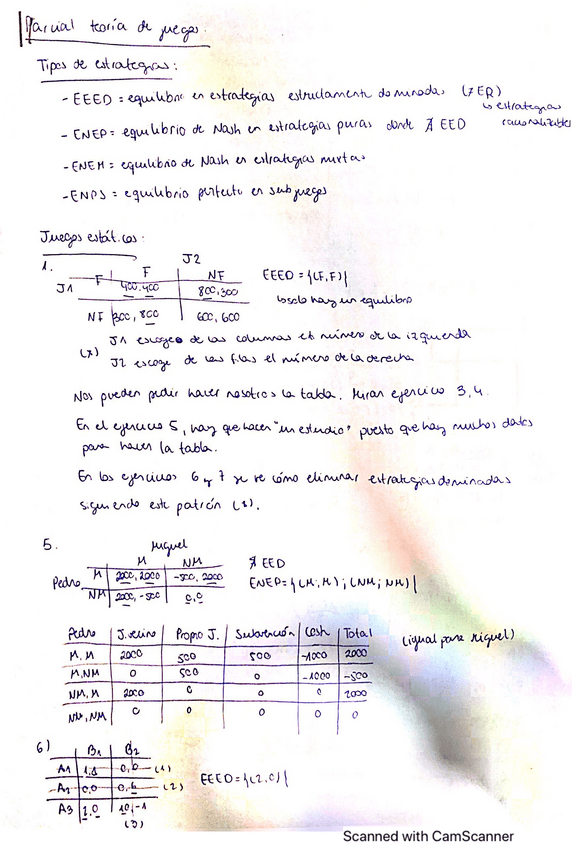 Parcial teoría de juegos.
Tipos de estrategias:
- EEED = equilibrio en estrategias estrictamente dominadas (≠ ER)
↳ estrategias racionalizables
- ENEP = equilibrio de Nash en estrategias puras donde ∄ EED
- ENEM = equilibrio de Nash en estrategias mixtas
- ENPS = equilibrio perfecto en subjuegos
Juegos estáticos:
1. J2
F NF
J1 F 400,400 800,300
NF 300,800 600,600
EEED = {(F,F)}
↳ solo hay un equilibrio
(*) J1 escoge de las columnas el número de la izquierda
J2 escoge de las filas el número de la derecha
Nos pueden pedir hacer nosotros la tabla. Miran ejercicio 3, 4.
En el ejercicio 5, hay que hacer "un estudio" puesto que hay muchos datos
para hacer la tabla.
En los ejercicios 6 y 7 se ve cómo eliminar estrategias dominadas
siguiendo este patrón (*).
5. Miguel
M NM
Pedro M 2000, 2000 -500, 2000
NM 2000, -500 0,0
∄ EED
ENEP = {(M;M); (NM; NM)}
Pedro J. vecino Propio J. Subvención Cost Total
M, M 2000 500 500 -1000 2000
M, NM 0 500 0 -1000 -500
NM, M 2000 0 0 0 2000
NM, NM 0 0 0 0 0
(igual para Miguel)
6) B1 B2
A1 1,1 0,0 (1)
A2 0,0 0,6 (2)
A3 2,0 10,-1
(3)
EEED = {(2,0)}
Scanned with CamScanner